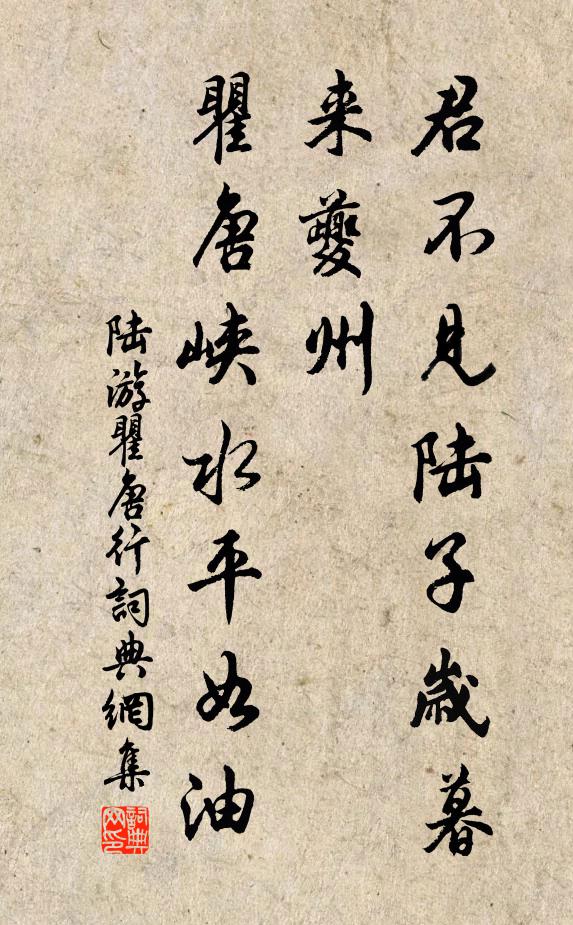 君不见陆子岁暮
来夔州
瞿唐峡水平如油
陆游瞿唐行词典網集
詞典
网印